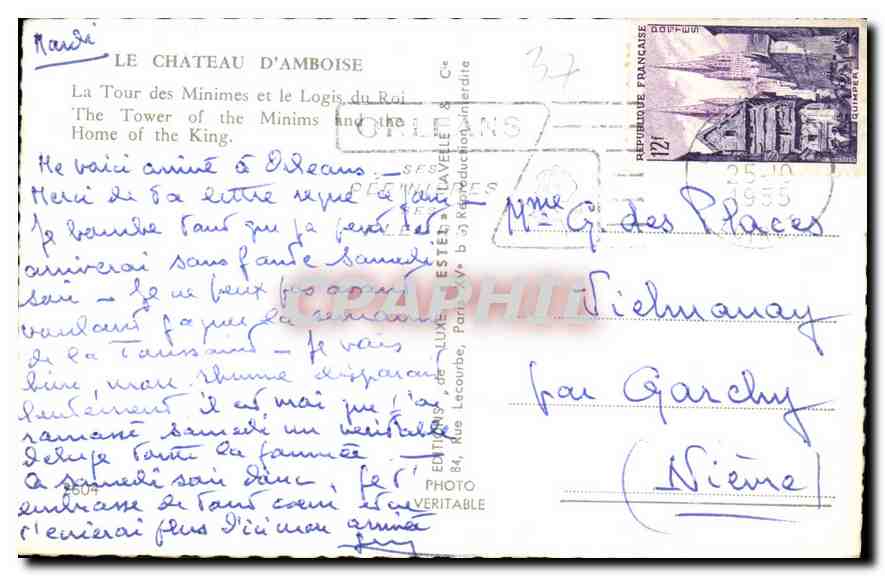 Mardi
LE CHATEAU D'AMBOISE
La Tour des Minimes et le Logis du Roi
The Tower of the Minims and the
Home of the King.
Me voici arrivé à Orléans –
Merci de ta lettre reçue à
Je tant que ça peut et
arriverai sans faute Samedi
soir – Je ne peux pas avant
voulant la semaine
de la Toussaint – Je vais
bien, mon rhume disparait
lentement il est vrai que j'ai
ramassé samedi un véritable
déluge toute la journée –
à samedi soir donc, je t'
embrasse de tout coeur et ne
t'écrirai plus d'ici mon arrivée
Guy
2604
PHOTO
VERITABLE
EDITIONS de LUXE " ESTEL " LAVELLE & Cie
84, Rue Lecourbe, Paris XVe Reproduction interdite
37
ORLEANS
SES
PEPINIERES
SES
25-10
1955
REPUBLIQUE FRANÇAISE
POSTES
QUIMPER
12f
CPAPHIL
Mme G. des Places
Vielmanay
par Garchy
(Nièvre)